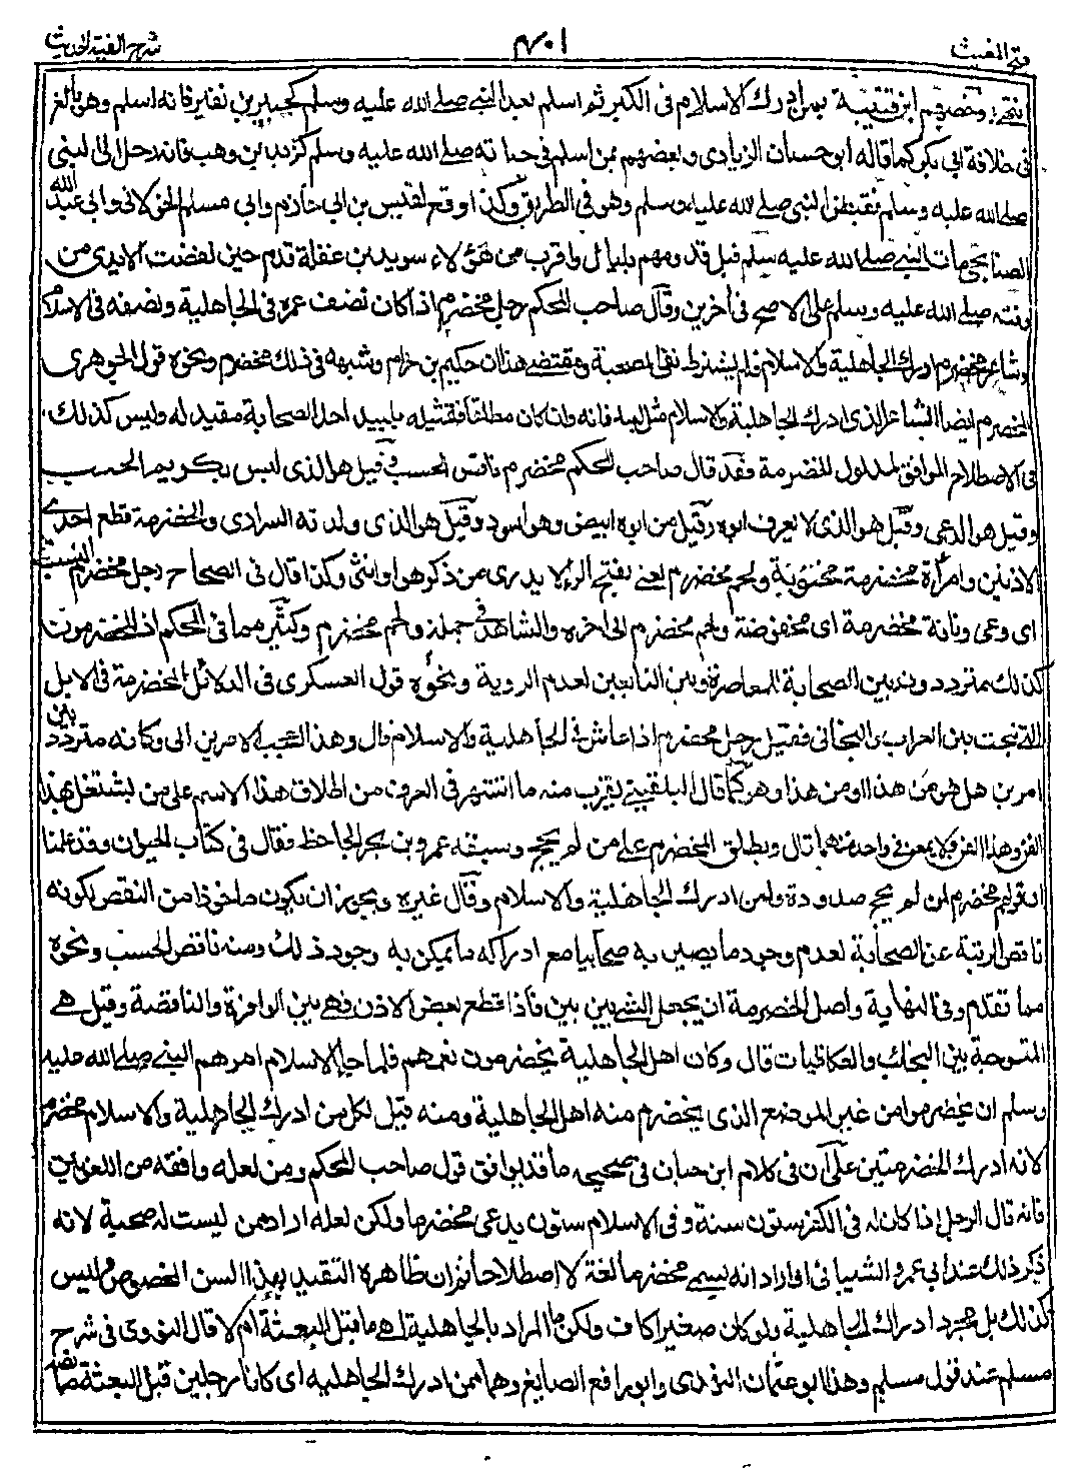 فتح المغيث ۴۰۱ شرح الفية الحديث
انتهى وخصهم ابن قتيبة بمن ادرك الاسلام في الكبر ثم اسلم بعد النبي صلى الله عليه وسلم كجبير بن نفير فانه اسلم وهو بالغ
في خلافة ابي بكر كما قاله ابو حسان الزيادي وبعضهم ممن اسلم في حياته صلى الله عليه وسلم كزيد بن وهب فانه رحل الى النبي
صلى الله عليه وسلم فقبض النبي صلى الله عليه وسلم وهو في الطريق وكذا وقع لقيس بن ابي حازم وابي مسلم الخولاني وابي عبد الله
الصنابحي مات النبي صلى الله عليه وسلم قبل قدومهم بليال واقرب من هؤلاء سويد بن غفلة قدم حين نفضت الايدي من
دفنه صلى الله عليه وسلم على الاصح في اخرين وقال صاحب المحكم رجل مخضرم اذا كان نصف عمره في الجاهلية ونصفه في الاسلام
وشاعر مخضرم ادرك الجاهلية والاسلام فلم يشترط نفي الصحبة ومقتضى هذا ان حكيم بن حزام وشبهه في ذلك مخضرم ونحوه قول الجوهري
المخضرم ايضا الشاعر الذي ادرك الجاهلية والاسلام مثل لبيد فانه وان كان مطلقا فتمثيله بلبيد احد الصحابة مقيد له وليس كذلك
في الاصطلاح الموافق لمدلول الخضرمة فقد قال صاحب المحكم مخضرم ناقص الحسب وقيل هو الذي ليس بكريم الحسب
وقيل هو الدعي وقيل هو الذي لا يعرف ابوه وقيل من ابوه ابيض وهو اسود وقيل هو الذي ولدته السراري والخضرمة قطع احدى
الاذنين وامرأة مخضرمة مخفوضة ولحم مخضرم يعني بفتح الراء لا يدرى من ذكر هو او انثى وكذا قال في الصحاح رجل مخضرم النسب
اي دعي وناقة مخضرمة اي مخفوضة ولحم مخضرم الى اخره والشاهد في جملة ولحم مخضرم وكثير مما في المحكم اذ المخضرمون
كذلك متردد ون بين الصحابة للمعاصرة وبين التابعين لعدم الروية ونحوه قول العسكري في الدلائل المخضرمة في الابل
التي نتجت بين العراب والبخاتي فقيل رجل مخضرم اذا عاش في الجاهلية والاسلام قال وهذا اعجب الامرين الي وكانه متردد بين
امرين هل هو من هذا او من هذا وهو كما قال البلقيني يقرب منه ما اشتهر في العرف من اطلاق هذا الاسم على من يشتغل بهذا
الفن وهذا الفن ولا يمعن في واحد منهما قال ويطلق المخضرم على من لم يحج وسبقه عمرو بن بحر الجاحظ فقال في كتاب الحيوان وقد علمنا
ان قولهم مخضرم لمن لم يحج صرورة ولمن ادرك الجاهلية والاسلام وقال غيره ويجوز ان يكون ماخوذا من النقص لكونه
ناقص الرتبة عن الصحابة لعدم وجود ما يصير به صحابيا مع ادراكه ما يمكن به وجود ذلك ومنه ناقص الحسب ونحوه
مما تقدم وفي النهاية واصل الخضرمة ان يجعل الشي بين بين فاذا قطع بعض الاذن فهي بين الوافرة والناقصة وقيل هي
المنتوجة بين البخت والعكاظيات قال وكان اهل الجاهلية يخضرمون نعمهم فلما جا الاسلام امرهم النبي صلى الله عليه
وسلم ان يخضرموا من غير الموضع الذي يخضرم منه اهل الجاهلية ومنه قيل لكل من ادرك الجاهلية والاسلام مخضرم
لانه ادرك الخضرمتين على ان في كلام ابن حبان في صحيحه ما قد يوافق قول صاحب المحكم ومن لعله وافقه من اللغويين
فانه قال الرجل اذا كان له في الكفر ستون سنة وفي الاسلام ستون يدعى مخضرما ولكن لعله اراد ممن ليست له صحبة لانه
ذكر ذلك عند ابي عمرو الشيباني اواراد انه يسمى مخضرما لغة لا اصطلاحا نعم ان ظاهره التقييد بهذا السن المخصوص وليس
كذلك بل مجرد ادراك الجاهلية ولو كان صغيرا كاف ولكن ما المراد بالجاهلية اهي ما قبل البعثة ام لا قال النووي في شرح
مسلم عند قول مسلم وهذا ابو عثمان النهدي وابو رافع الصايغ وهما ممن ادرك الجاهلية اي كانا رجلين قبل البعثة ما نصه